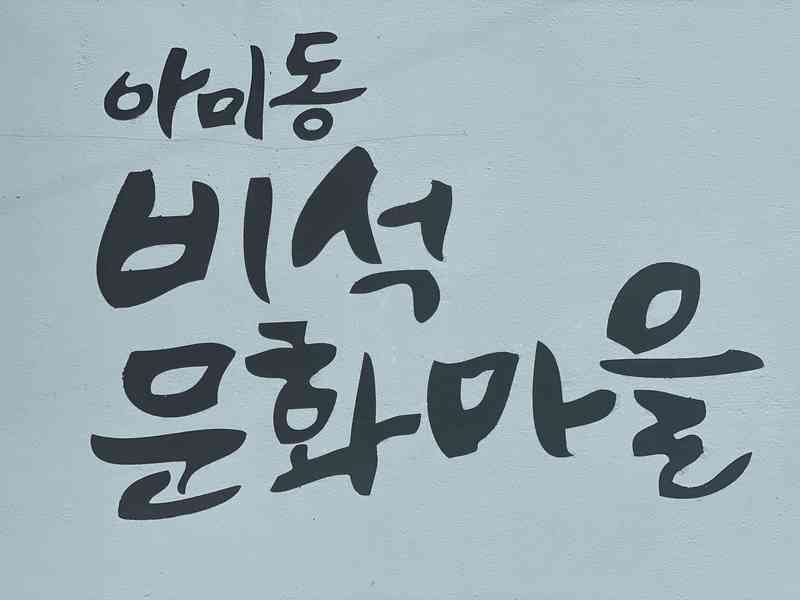 아미동
비석
문화마을